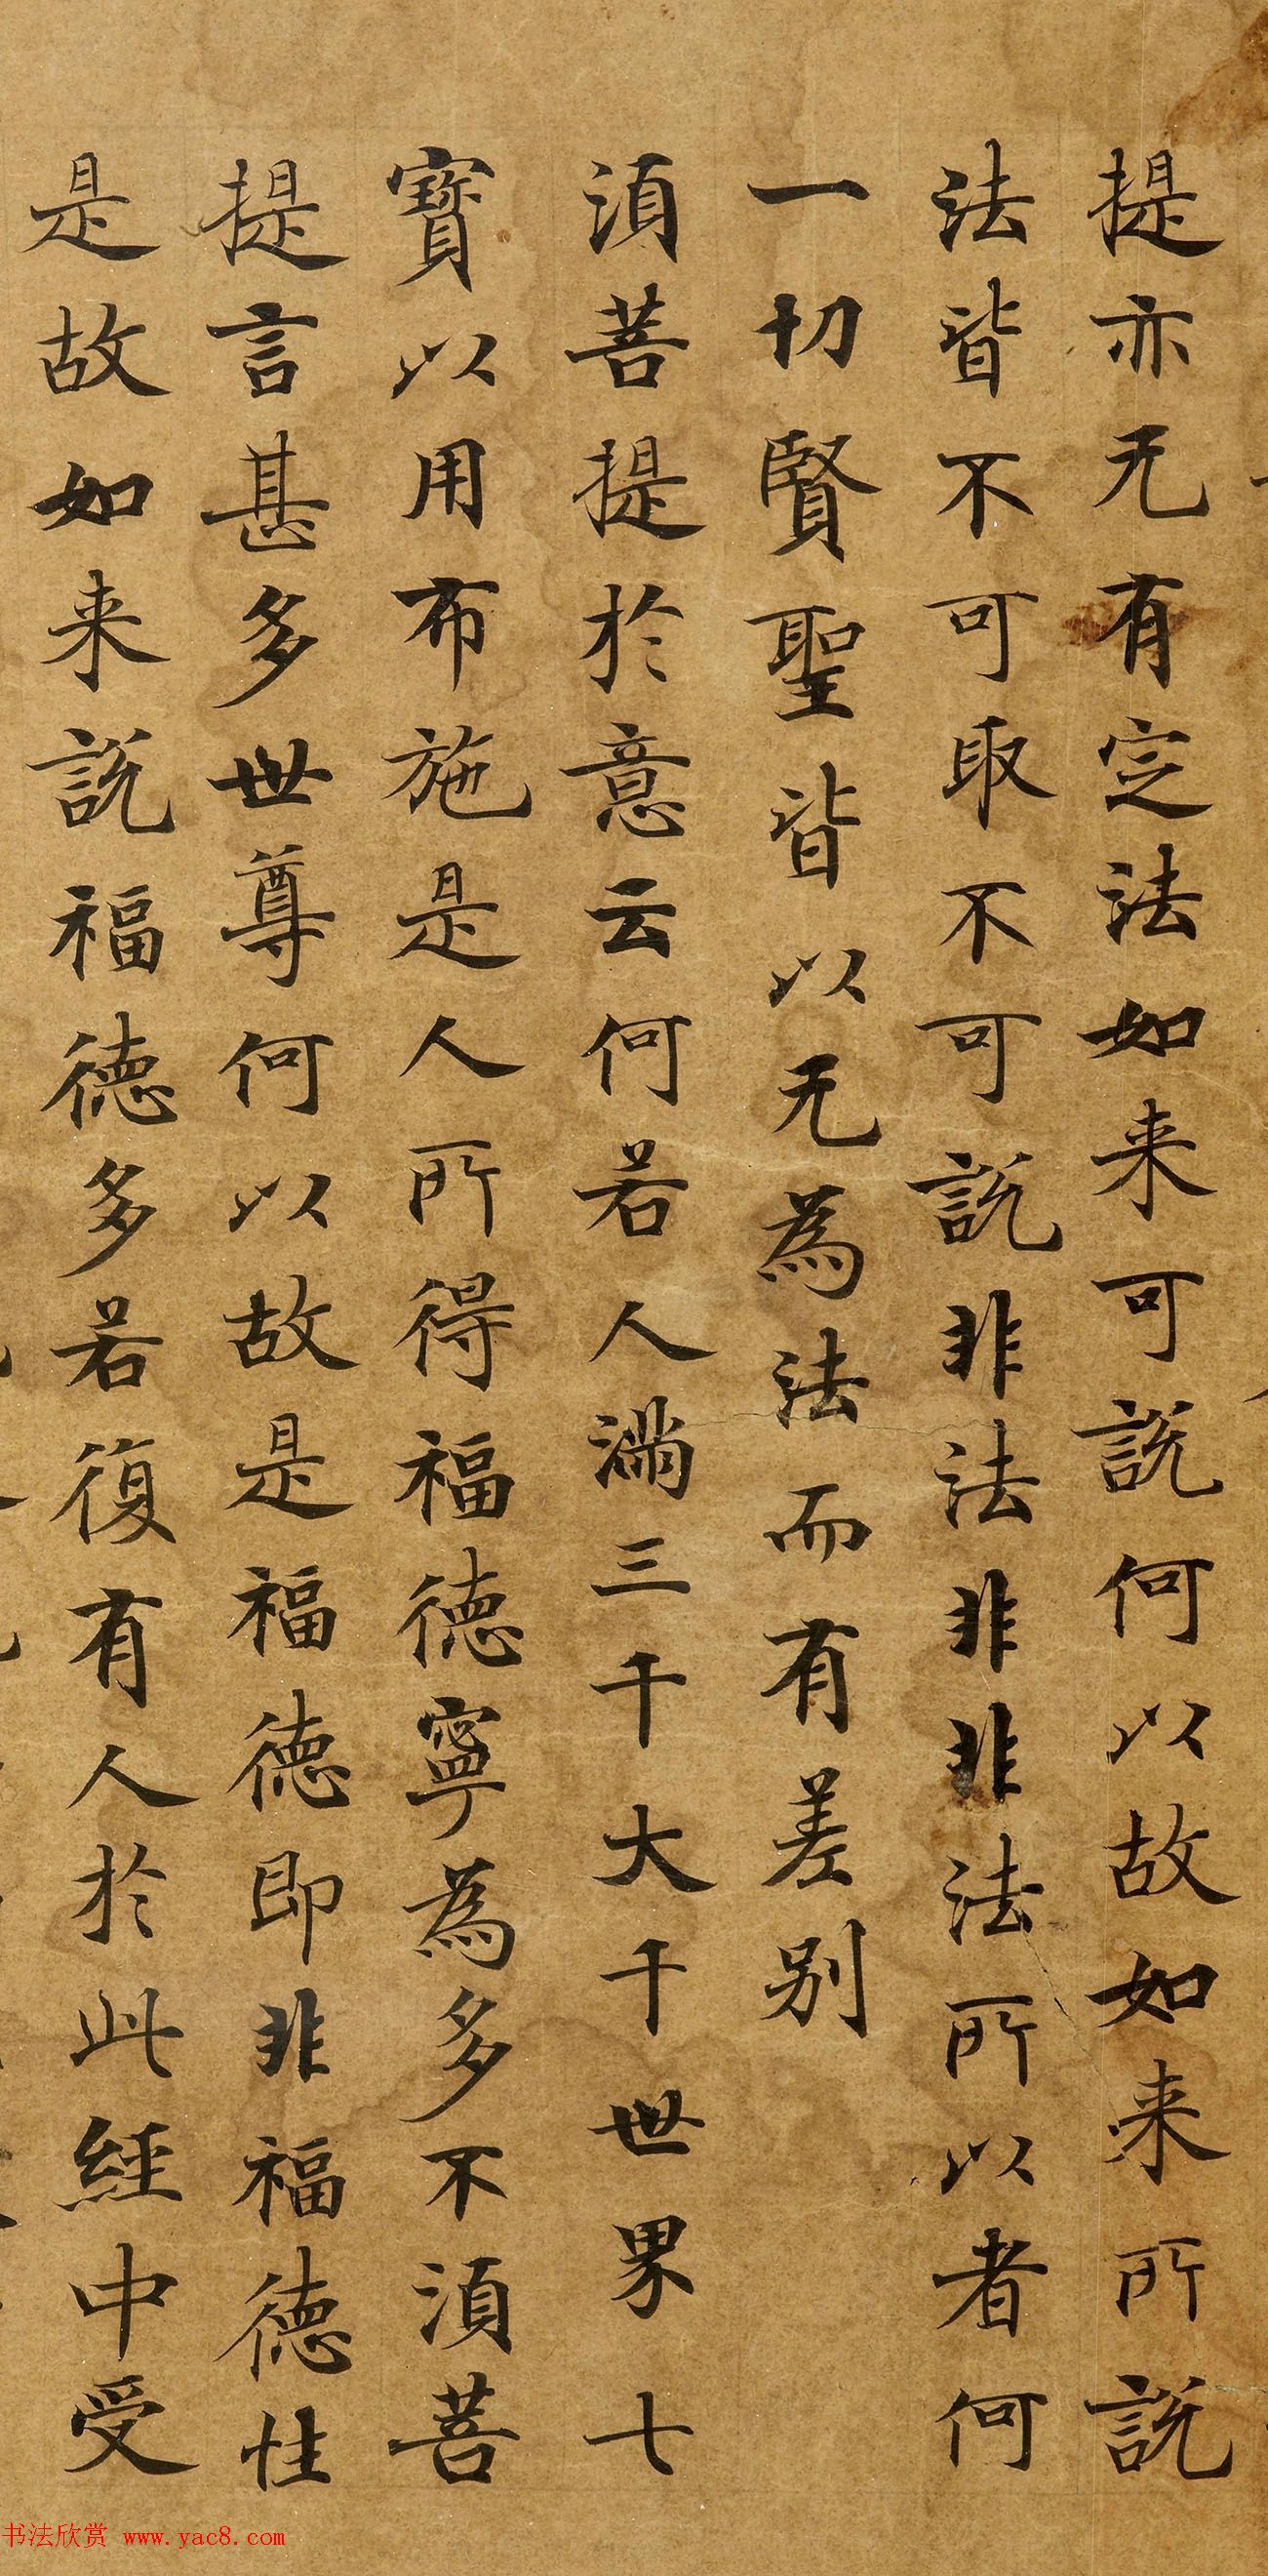 提亦无有定法如来可說何以故如来所說
法皆不可取不可說非法非非法所以者何
一切賢聖皆以无為法而有差别
須菩提於意云何若人滿三千大千世界七
寶以用布施是人所得福德寧為多不須菩
提言甚多世尊何以故是福德即非福德性
是故如来說福德多若復有人於此經中受
书法欣赏 www.yac8.com